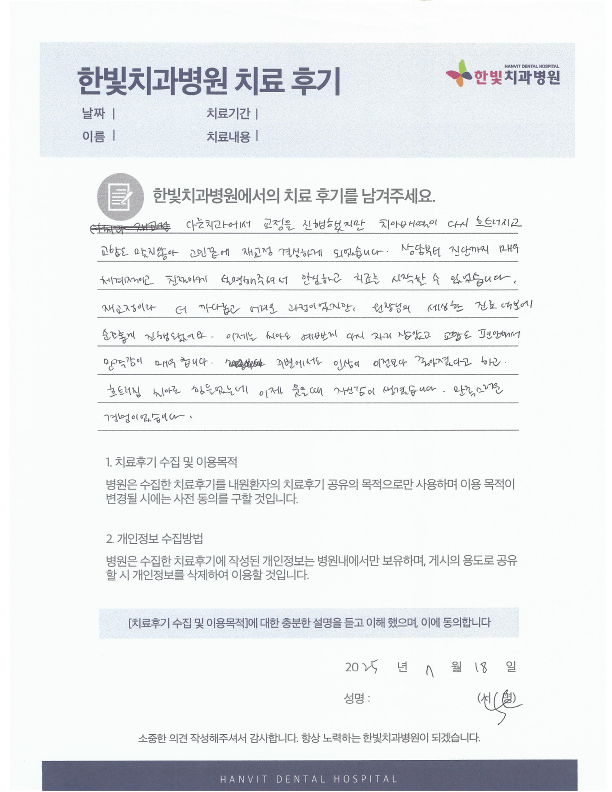 한빛치과병원 치료 후기
HANVIT DENTAL HOSPITAL
한빛치과병원
날짜 | 치료기간 |
이름 | 치료내용 |
한빛치과병원에서의 치료 후기를 남겨주세요.
다른치과에서 교정을 진행했지만 치아배열이 다시 흐트러지고
교합도 맞지않아 고민끝에 재교정 결심하게 되었습니다. 상담부터 진단까지 매우
체계적이고 친절하게 설명해주셔서 안심하고 치료를 시작할 수 있었습니다.
재교정이라 더 까다롭고 어려운 과정이었지만, 원장님의 세심한 진료 덕분에
순조롭게 진행되었어요. 이제는 치아도 예쁘게 다시 자리 잡았고 교합도 편안해져
만족감이 매우 큽니다. 주변에서도 인상이 이전보다 좋아졌다고 하고.
흐트러진 치아로 힘들었는데 이제 웃을때 자신감이 생겼습니다. 만족스러운
경험이었습니다.
1. 치료후기 수집 및 이용목적
병원은 수집한 치료후기를 내원환자의 치료후기 공유의 목적으로만 사용하며 이용 목적이
변경될 시에는 사전 동의를 구할 것입니다.
2. 개인정보 수집방법
병원은 수집한 치료후기에 작성된 개인정보는 병원내에서만 보유하며, 게시의 용도로 공유
할 시 개인정보를 삭제하여 이용할 것입니다.
[치료후기 수집 및 이용목적]에 대한 충분한 설명을 듣고 이해 했으며, 이에 동의합니다
2025 년 월 18 일
성명 : (서명)
소중한 의견 작성해주셔서 감사합니다. 항상 노력하는 한빛치과병원이 되겠습니다.
HANVIT DENTAL HOSPITAL